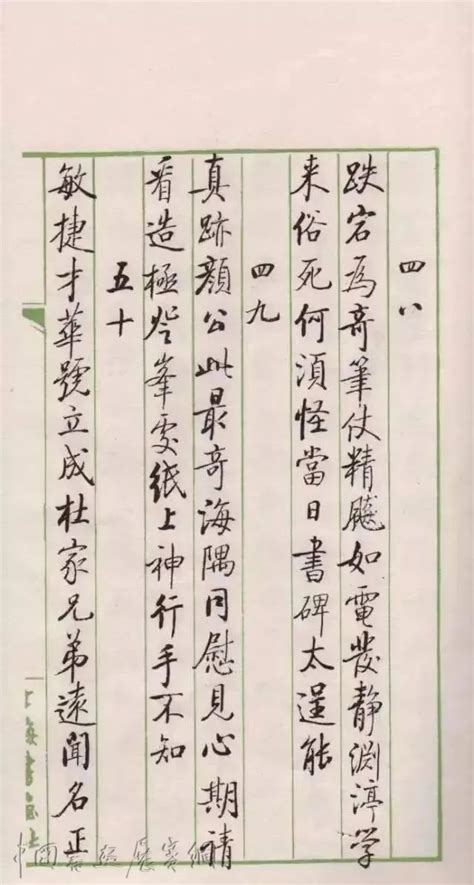 四八
跌宕为奇笔仗精飚如電發静渊渟学
来俗死何須怪當日書碑太逞能
四九
真跡顔公此最奇海隅同慰見心期請
看造極登峯處纸上神行手不知
五十
敏捷才華號立成杜家兄弟遠聞名正
上海書画社
中國書法展賽網